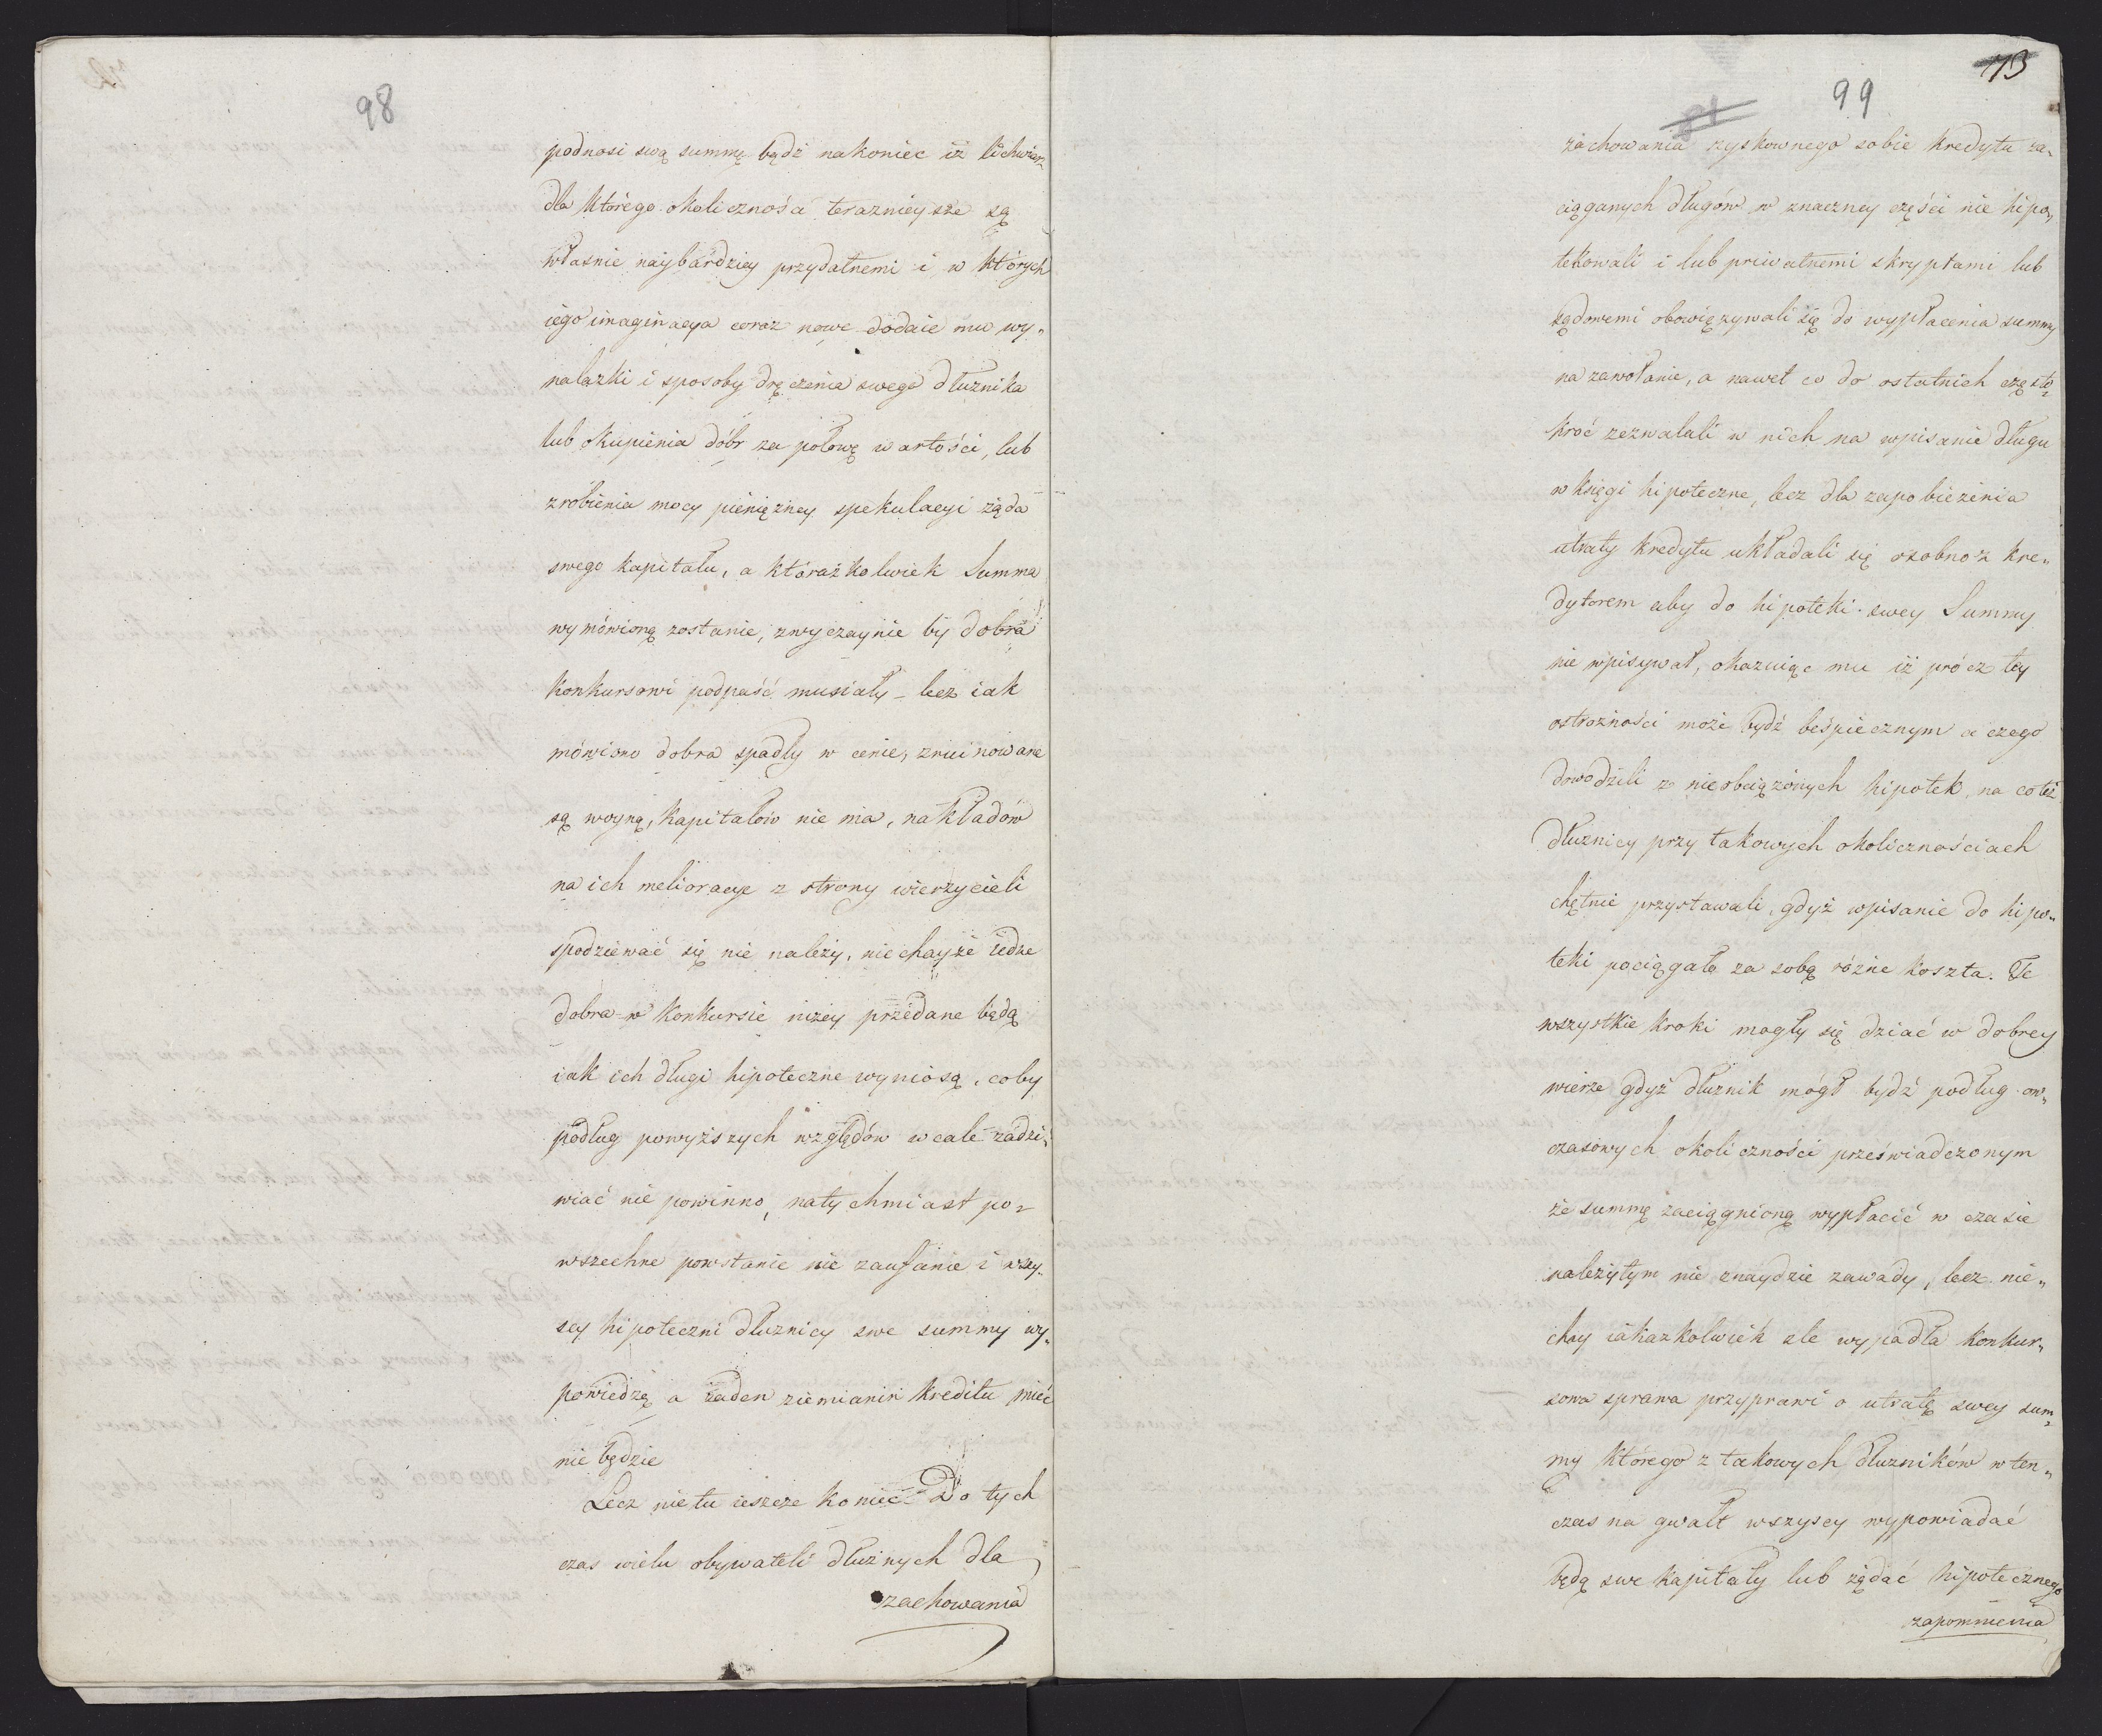 98
podnosi swą summę bądź nakoniec iż lichwiarz
dla którego okoliczności teraznieysze są
własnie naybardziey przydatnemi i w których
iego imaginacya coraz nowe dodaie mu wy„
nalazki i sposoby dręczenia swego dłuznika
lub okupienia dóbr za połowę wartości, lub
zrobienia mocy pieniężney spekulacyi żąda
swego kapitału, a któraźkolwiek Summa
wymówioną zostanie, zwyczaynie by dobra
konkursowi podpaść musiały – lecz iak
mówiono dobra spadły w cenie, zruinowane
są woyną, kapitałów nie ma, nakładów
na ich melioracye z strony wierzycieli
spodziewać się nie należy, niechayże iedne
dobra w konkursie niżey przedane będą
iak ich długi hipoteczne wyniosą, coby
podług powyższych względów wcale zadzi„
wiać nie powinno, natychmiast po„
wszechne powstanie nie zaufanie i wszy„
scy hipoteczni dłuznicy swe summy wy„
powiedzą a żaden ziemianin kreditu mieć
nie będzie
Lecz nietu ieszcze koniec – Do tych
czas wielu obywateli dłużnych dla
zachowania
73
99
81
zachowania zyskownego sobie kredytu za„
ciąganych długów w znaczney części nie hipo„
tekowali i lub privatnemi skryptami lub
sądowemi obowięzywali się do wypłacenia summy
na zawołanie, a nawet co do ostatnich często„
kroć zezwalali w nich na wpisanie długu
w księgi hipoteczne, lecz dla zapobieżenia
utraty kredytu układali się osobno z kre„
dytorem aby do hipoteki swey Summy
nie wpisywał, okazuiąc mu iż prócz tey
ostrożności może bydź beśpiecznym a czego
dowodzili z nieobciążonych hipotek, na co też
dłuznicy przy takowych okolicznościach
chętnie przystawali, gdyż wpisanie do hipo„
teki pociągało za sobą różne koszta. Te
wszystkie kroki mogły się dziać w dobrey
wierze gdyż dłuznik mógł bydź podług ow„
czasowych okoliczności przeświadczonym
że summę zaciągnioną wypłacić w czasie
należytym nie znaydzie zawady, lecz nie„
chay iakazkolwiek źle wypadła konkur„
sowa sprawa przyprawi o utratę swey sum„
my którego z takowych dłuzników w ten„
czas na gwałt wszyscy wypowiadać
będą swe kapitały lub żądać hipotecznego
zapomnienia